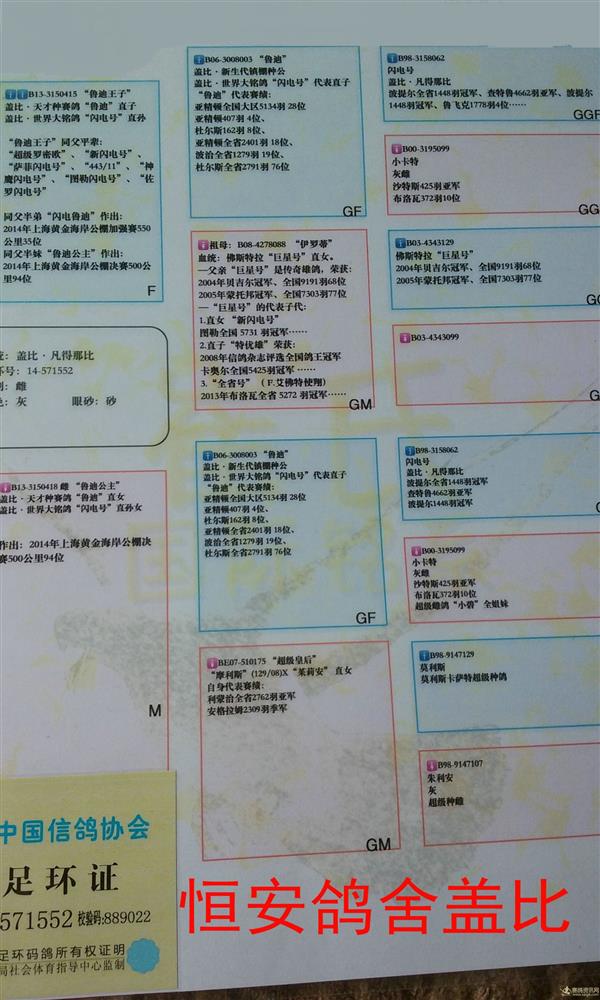 B13-3150415 “鲁迪王子”
盖比·天才种赛鸽“鲁迪”直子
盖比·世界大铭鸽“闪电号”直孙
“鲁迪王子”同父平辈:
“超级罗密欧”、“新闪电号”、
“萨菲闪电号”、“443/11”、“神
鹰闪电号”、“图勒闪电号”、“佐
罗闪电号”
同父半弟“闪电鲁迪”作出:
2014年上海黄金海岸公棚加强赛550
公里35位
同父半妹“鲁迪公主”作出:
2014年上海黄金海岸公棚决赛500公
里94位
F
盖比·凡得那比
环号: 14-571552
雌
灰 眼砂: 砂
B13-3150418 雌 “鲁迪公主”
盖比·天才种赛鸽“鲁迪”直女
盖比·世界大铭鸽“闪电号”直孙女
作出: 2014年上海黄金海岸公棚决
赛500公里94位
M
中国信鸽协会
足环证
571552 校验码:889022
足环码鸽所有权证明
局社会体育指导中心监制
B06-3008003 “鲁迪”
盖比·新生代镇棚种公
盖比·世界大铭鸽“闪电号”代表直子
“鲁迪”代表赛绩:
亚精顿全国大区5134羽 28位
亚精顿407羽 4位、
杜尔斯162羽 8位、
亚精顿全省2401羽 18位、
波治全省1279羽 19位、
杜尔斯全省2791羽 76位
GF
祖母: B08-4278088 “伊罗蒂”
血统: 佛斯特拉“巨星号”直女。
—父亲“巨星号”是传奇雄鸽, 荣获:
2004年贝吉尔冠军、全国9191羽68位
2005年蒙托邦冠军、全国7303羽77位
—“巨星号”的代表子代:
1.直女“新闪电号”
图勒全国 5731 羽冠军……
2.直子“特优雄”荣获:
2008年信鸽杂志评选全国鸽王冠军
卡奥尔全国5425羽冠军 ……
3.“全省号”（F.艾佛特使翔）
2013年布洛瓦全省 5272 羽冠军……
GM
B06-3008003 “鲁迪”
盖比·新生代镇棚种公
盖比·世界大铭鸽“闪电号”代表直子
“鲁迪”代表赛绩:
亚精顿全国大区5134羽 28位
亚精顿407羽 4位、
杜尔斯162羽 8位、
亚精顿全省2401羽 18位、
波治全省1279羽 19位、
杜尔斯全省2791羽 76位
GF
BE07-510175 “超级皇后”
“摩利斯”(129/08)X“茱莉安” 直女
自身代表赛绩:
利蒙治全省2762羽亚军
安格拉姆2309羽季军
GM
B98-3158062
闪电号
盖比·凡得那比
波提尔全省1448羽冠军、查特鲁4662羽亚军、波提尔
1448羽冠军、鲁飞克1778羽4位……
GGF
B00-3195099
小卡特
灰雌
沙特斯425羽亚军
布洛瓦372羽10位
GG
B03-4343129
佛斯特拉“巨星号”
2004年贝吉尔冠军、全国9191羽68位
2005年蒙托邦冠军、全国7303羽77位
B03-4343099
B98-3158062
闪电号
盖比·凡得那比
波提尔全省1448羽冠军
查特鲁4662羽亚军
波提尔1448羽冠军
B00-3195099
小卡特
灰雌
沙特斯425羽亚军
布洛瓦372羽10位
超级雌鸽“小碧”全姐妹
B98-9147129
莫利斯
莫利斯卡萨特超级种鸽
B98-9147107
朱利安
灰
超级种雌
恒安鸽舍盖比